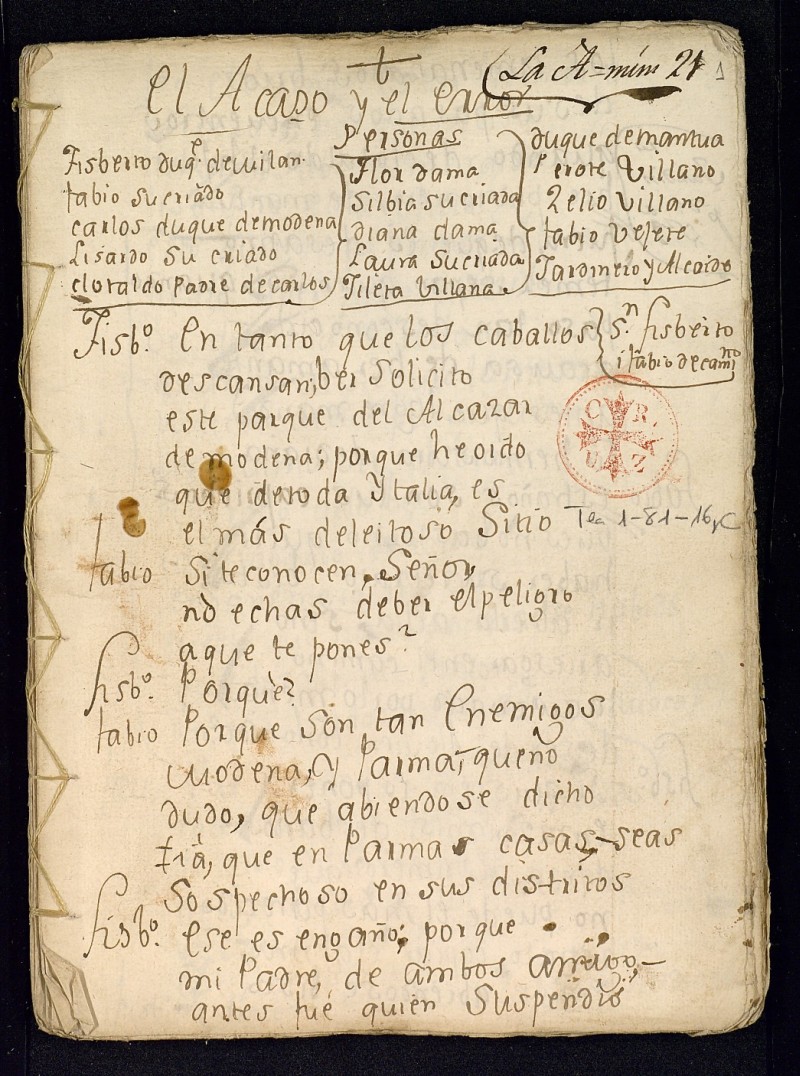 La A = núm 21
1
El Acaso y el error
Personas
Fisberto duqe. de milan.
fabio su criado
carlos duque de modena
Lisardo su criado
clotaldo Padre de carlos
Flor dama
Silbia su criada
diana dama
Laura su criada
Fileta Villana
duque de mantua
Perote Villano
Zelio Villano
fabio vejete
Jardinero y Alcaide
Fisbo. En tanto que los caballos
Sn. fisberto
i fabio de camno
descansan, ber solicito
este parque del Alcazar
de modena; porque he oido
que de toda Ytalia, es
el más deleitoso Sitio
Tea 1-81-16, C
CRUZ
fabio Si te conocen, Señor,
no echas de ber el peligro
a que te pones?
fisbo. Porquè?
fabio Porque son tan Enemigos
modena, y Parma, que no
dudo, que abiendose dicho
Irà, que en Parma casas, seas
Sospechoso en sus distritos
fisbo. Ese es engaño; porque
mi Padre, de ambos amigo,
antes fué quien Suspendió